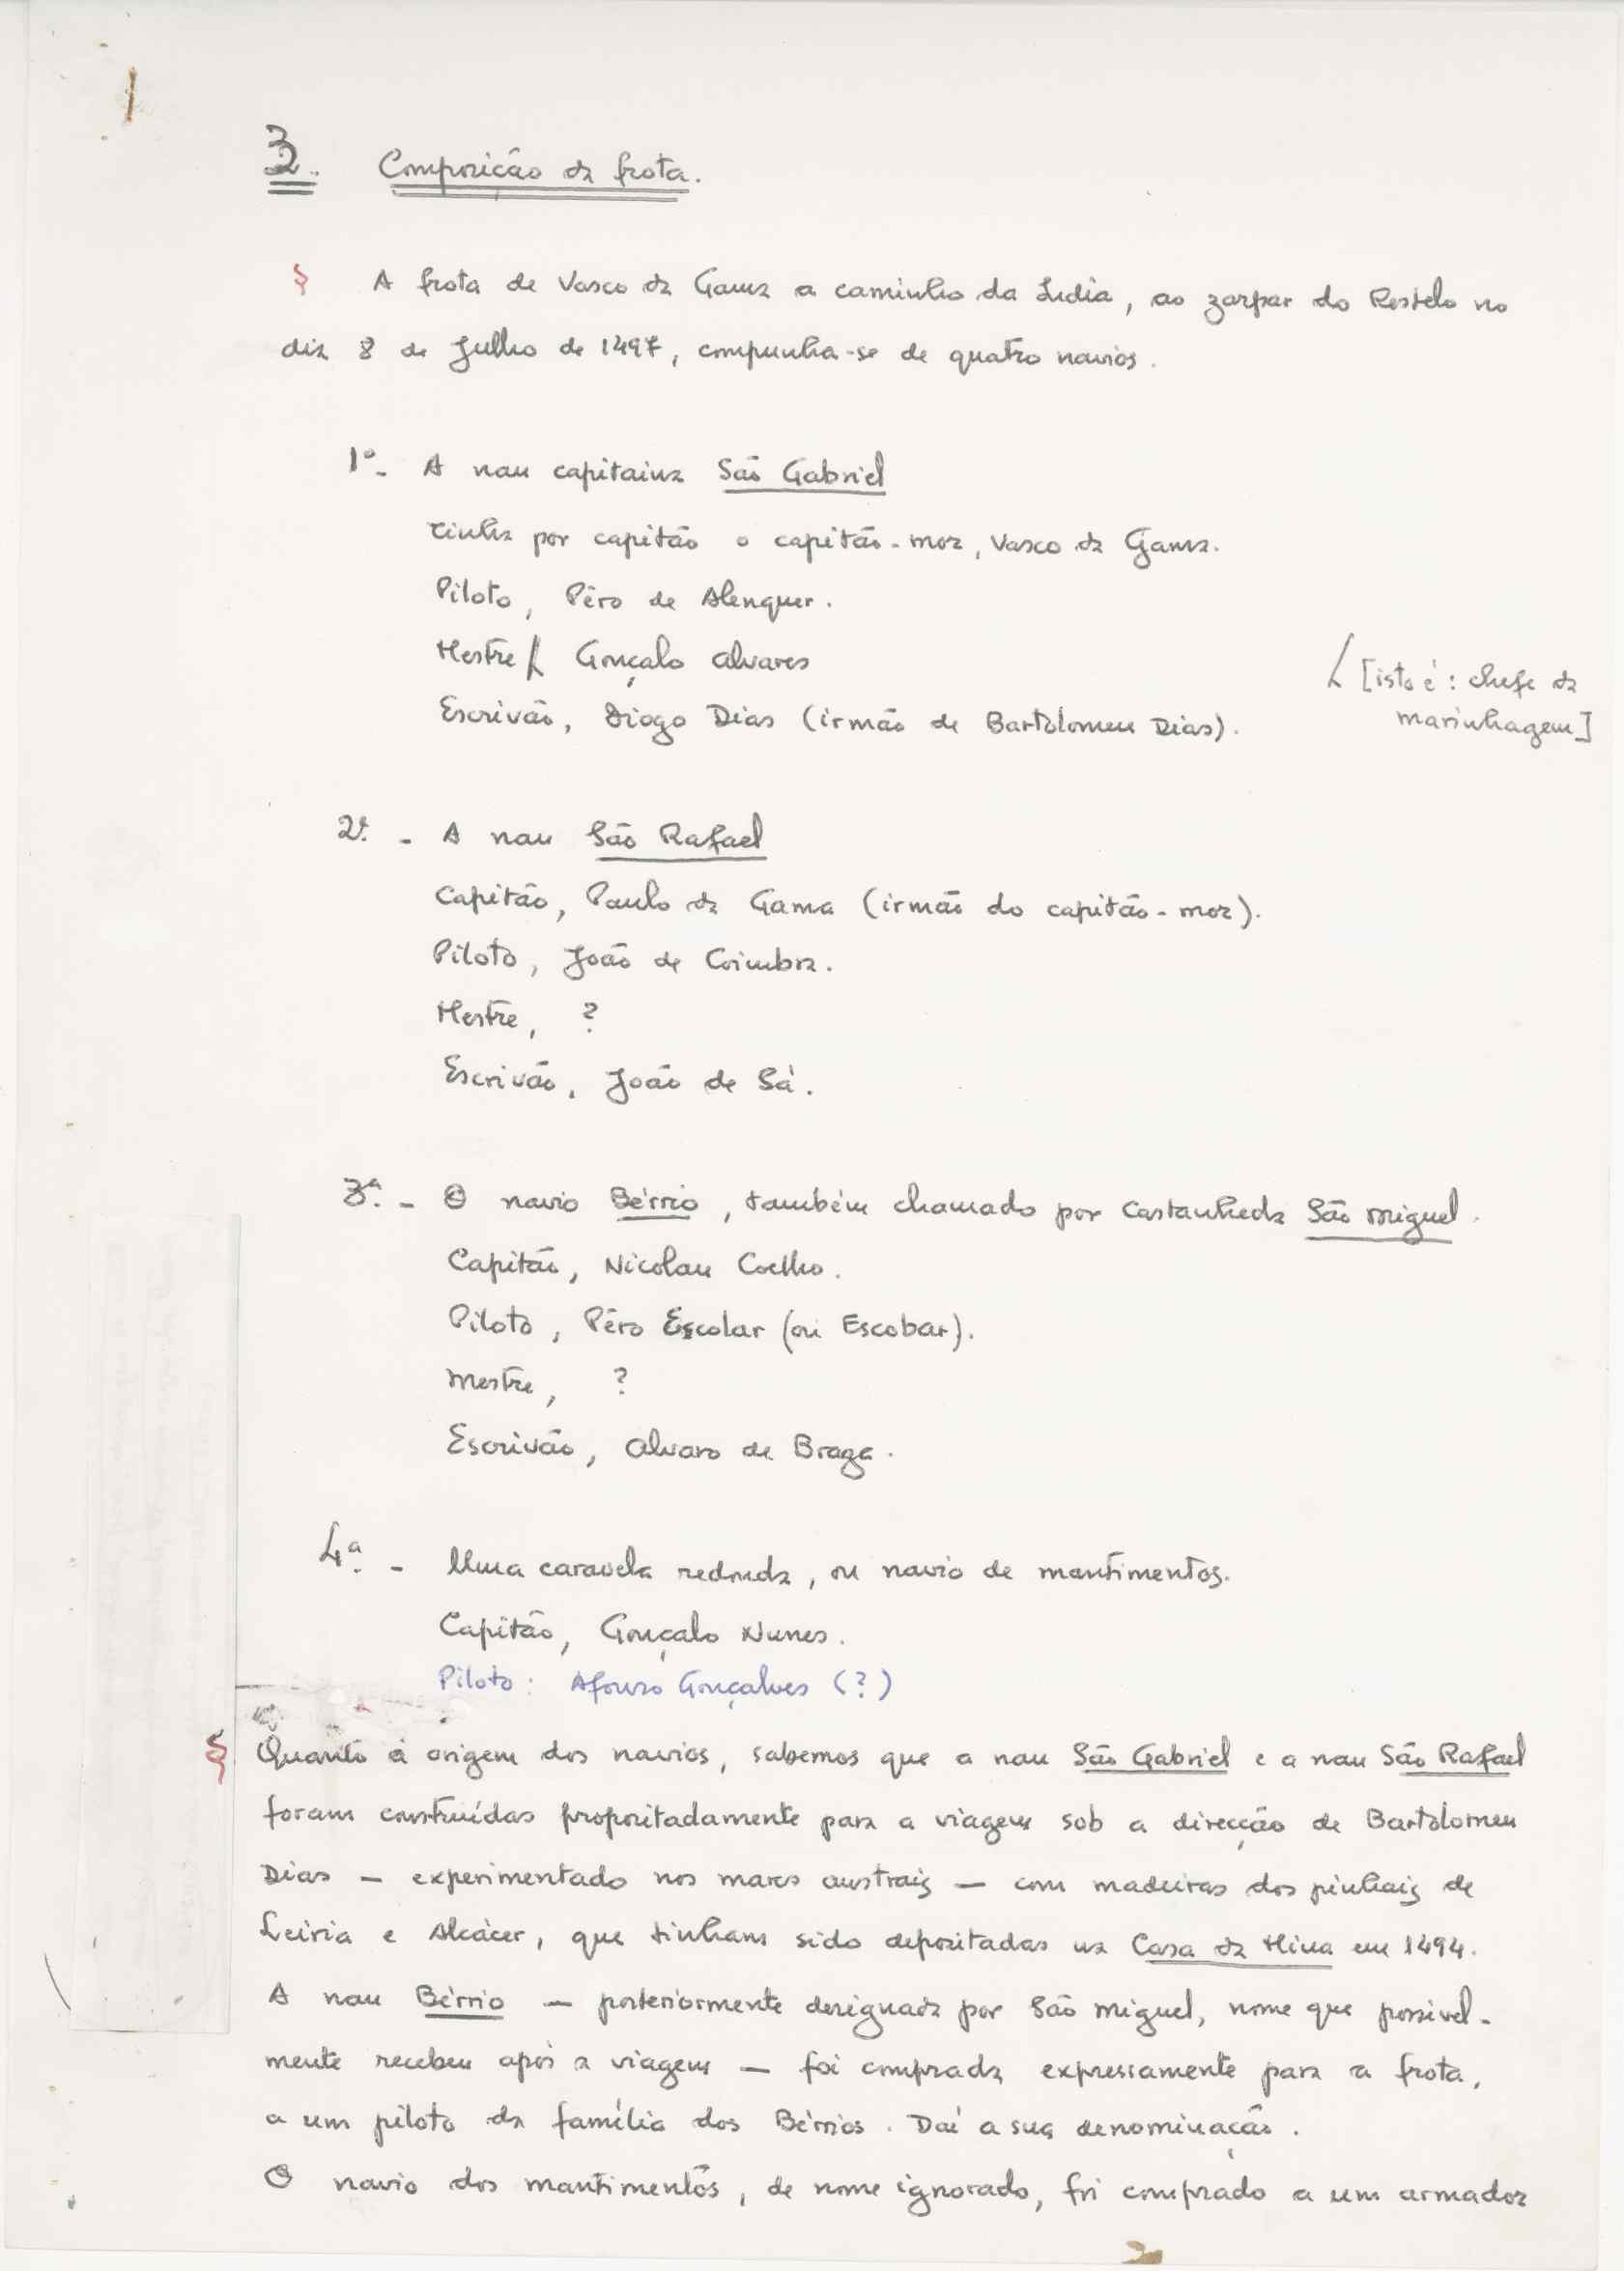 3. Composição da frota.
§ A frota de Vasco da Gama a caminho da Índia, ao zarpar do Restelo no
dia 8 de Julho de 1497, compunha-se de quatro navios.
1º- A nau capitaina São Gabriel
tinha por capitão o capitão-mor, Vasco da Gama.
Piloto, Pêro de Alenquer.
Mestre Gonçalo Alvares
[isto é: chefe da
marinhagem]
Escrivão, Diogo Dias (irmão de Bartolomeu Dias).
2ª. - A nau São Rafael
Capitão, Paulo da Gama (irmão do capitão-mor).
Piloto, João de Coimbra.
Mestre, ?
Escrivão, João de Sá.
3ª. - O navio Bérrio, também chamado por Castanheda São Miguel.
Capitão, Nicolau Coelho.
Piloto, Pêro Escolar (ou Escobar).
Mestre, ?
Escrivão, Alvaro de Braga.
4ª. - Uma caravela redonda, ou navio de mantimentos.
Capitão, Gonçalo Nunes.
Piloto: Afonso Gonçalves (?)
§ Quanto à origem dos navios, sabemos que a nau São Gabriel e a nau São Rafael
foram construídas propositadamente para a viagem sob a direcção de Bartolomeu
Dias — experimentado nos mares austrais — com madeiras dos pinhais de
Leiria e Alcácer, que tinham sido depositadas na Casa da Mina em 1494.
A nau Bérrio — posteriormente designada por São Miguel, nome que possivel-
mente recebeu após a viagem — foi comprada expressamente para a frota,
a um piloto da família dos Bérrios. Daí a sua denominação.
O navio dos mantimentos, de nome ignorado, foi comprado a um armador